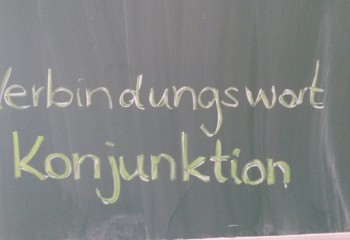 Verbindungswort
Konjunktion